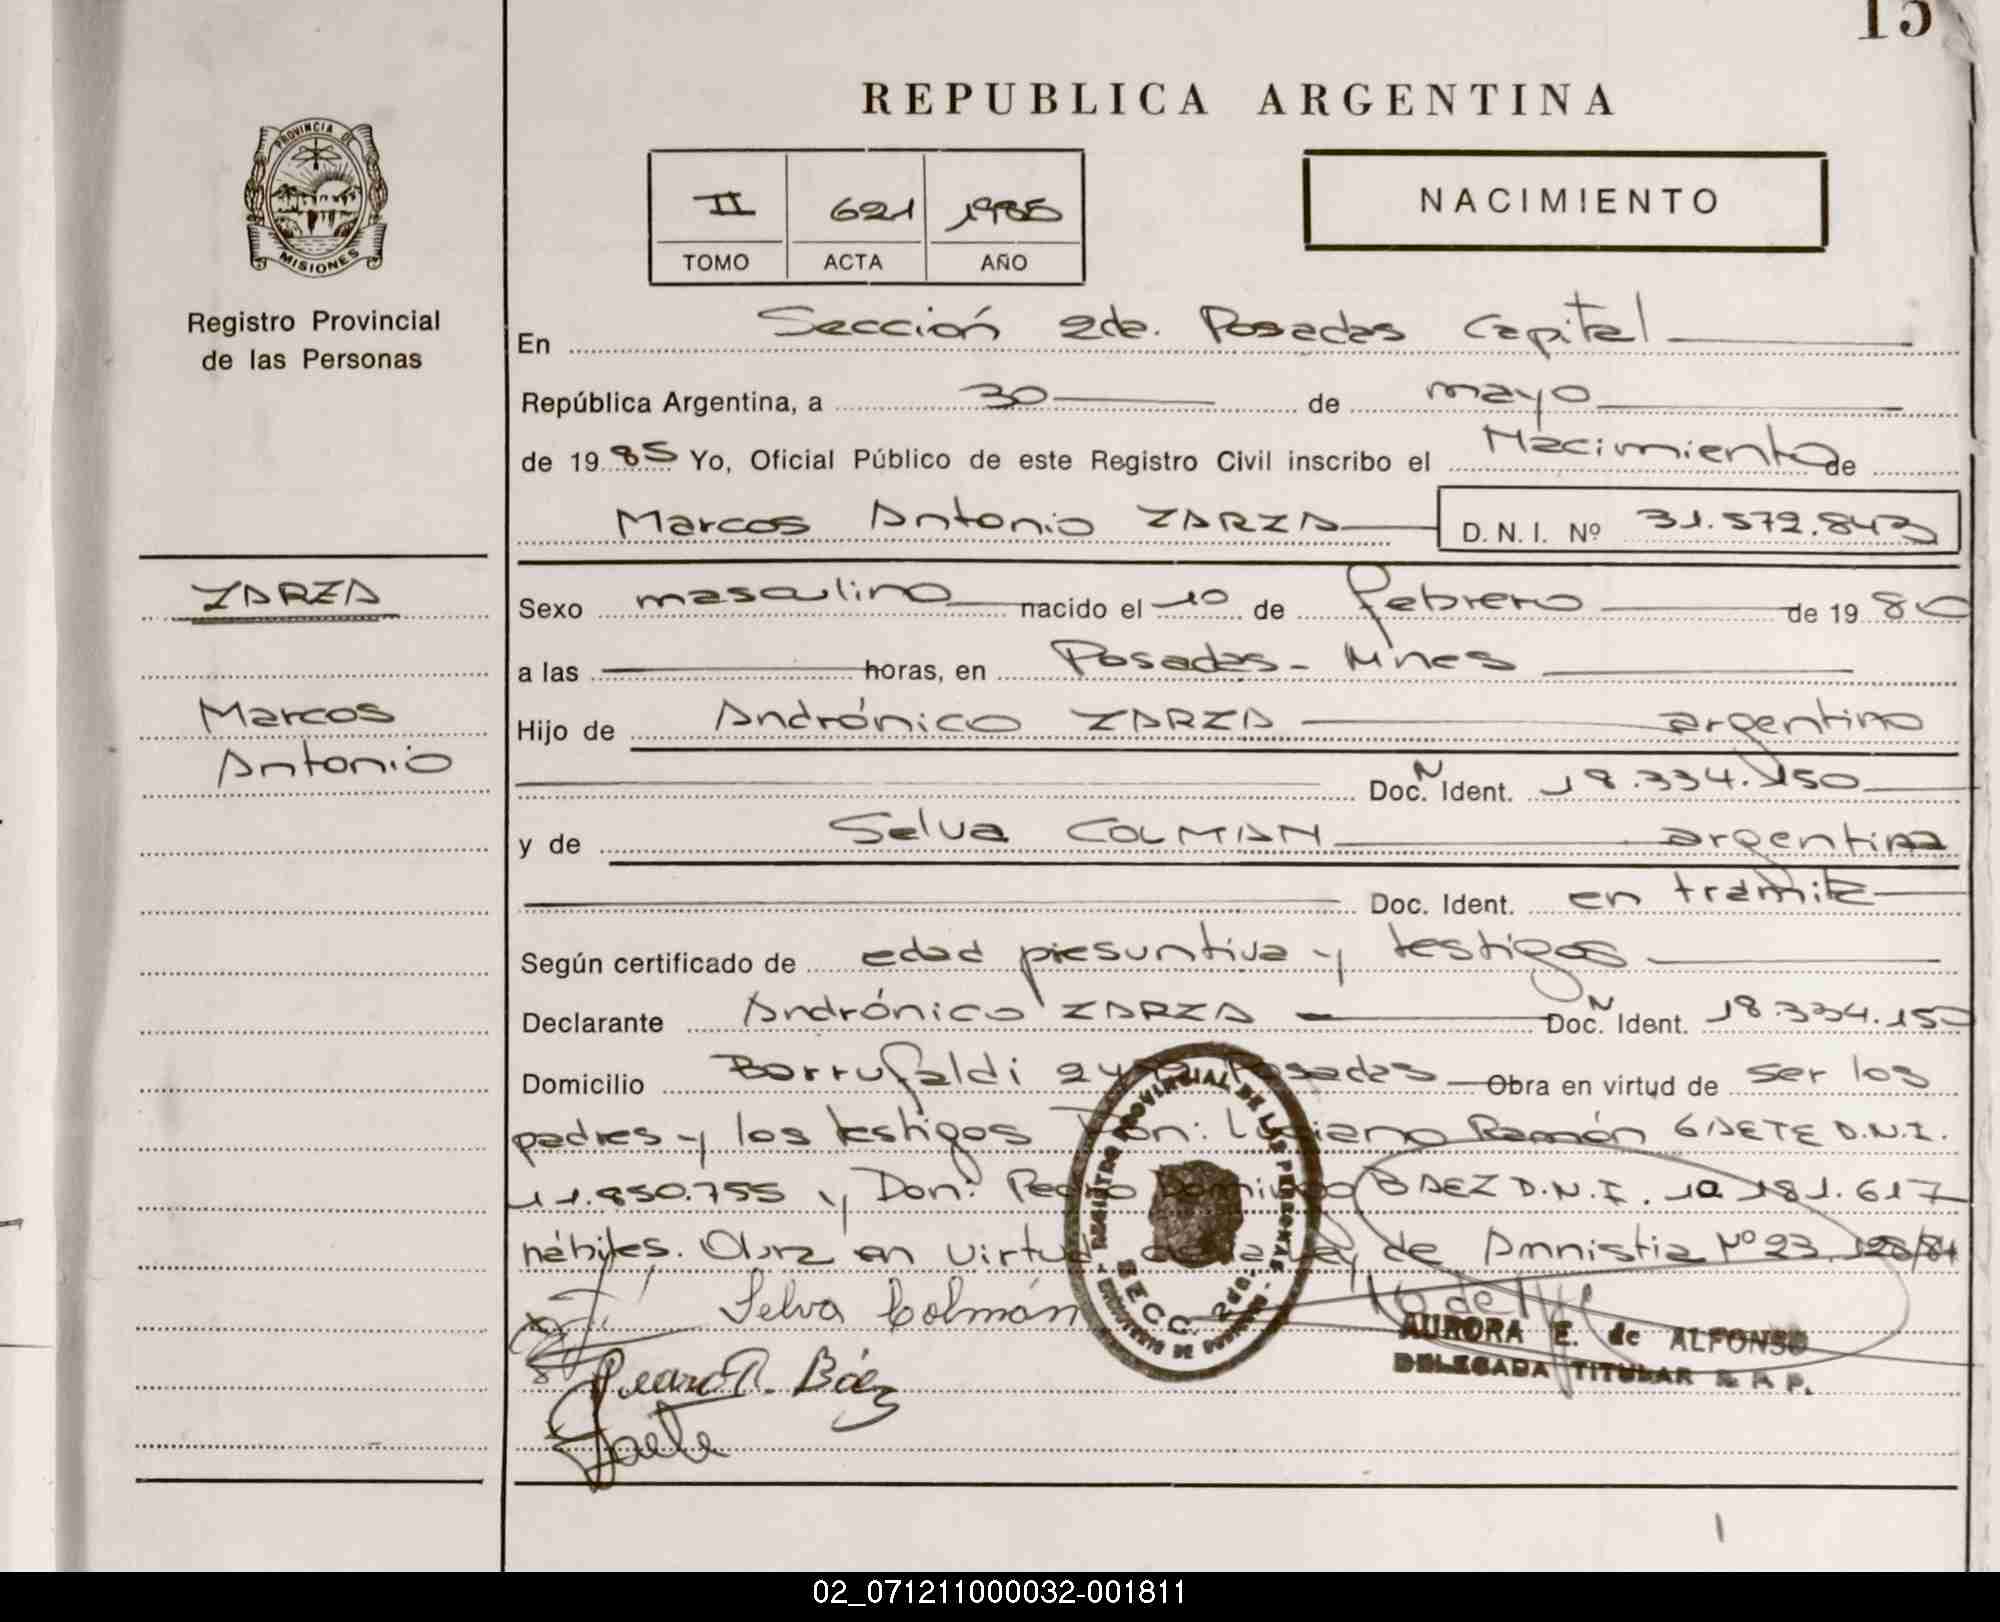 15
REPUBLICA ARGENTINA
PROVINCIA DE
MISIONES
Registro Provincial
de las Personas
II 621 1985
TOMO ACTA AÑO
NACIMIENTO
En Sección 2da. Posadas Capital
República Argentina, a 30 de mayo
de 1985 Yo, Oficial Público de este Registro Civil inscribo el Nacimiento de
Marcos Antonio ZARZA D. N. I. Nº 31.572.843
ZARZA
Marcos
Antonio
Sexo masculino nacido el 10 de febrero de 1980
a las horas, en Posadas - Mnes
Hijo de Andrónico ZARZA argentino
Doc. N Ident. 18.334.150
y de Selva COLMAN argentina
Doc. Ident. en tramite
Según certificado de edad presuntiva y testigos
Declarante Andrónico ZARZA Doc. N Ident. 18.334.150
Domicilio Borrufaldi Posadas Obra en virtud de ser los
padres y los testigos Don: Luciano Ramón GAETE D.N.I.
11.850.755 y Don: Pedro Domingo BAEZ D.N.I. 10 181.617
hábiles. Obra en virtud de la Ley de Amnistia Nº 23.128/84
Selva Colmán
REGISTRO PROVINCIAL DE LAS PERSONAS
SECC. 2DA.
AURORA E. de ALFONSO
DELEGADA TITULAR R. P. P.
Báez
Gaete
02_071211000032-001811